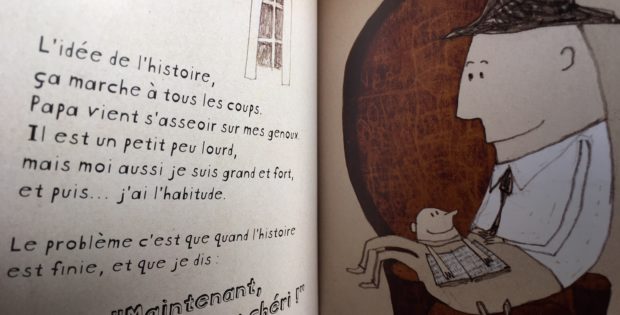 L'idée de l'histoire,
ça marche à tous les coups.
Papa vient s'asseoir sur mes genoux.
Il est un petit peu lourd,
mais moi aussi je suis grand et fort,
et puis... j'ai l'habitude.
Le problème c'est que quand l'histoire
est finie, et que je dis :
"Maintenant,
chéri !"